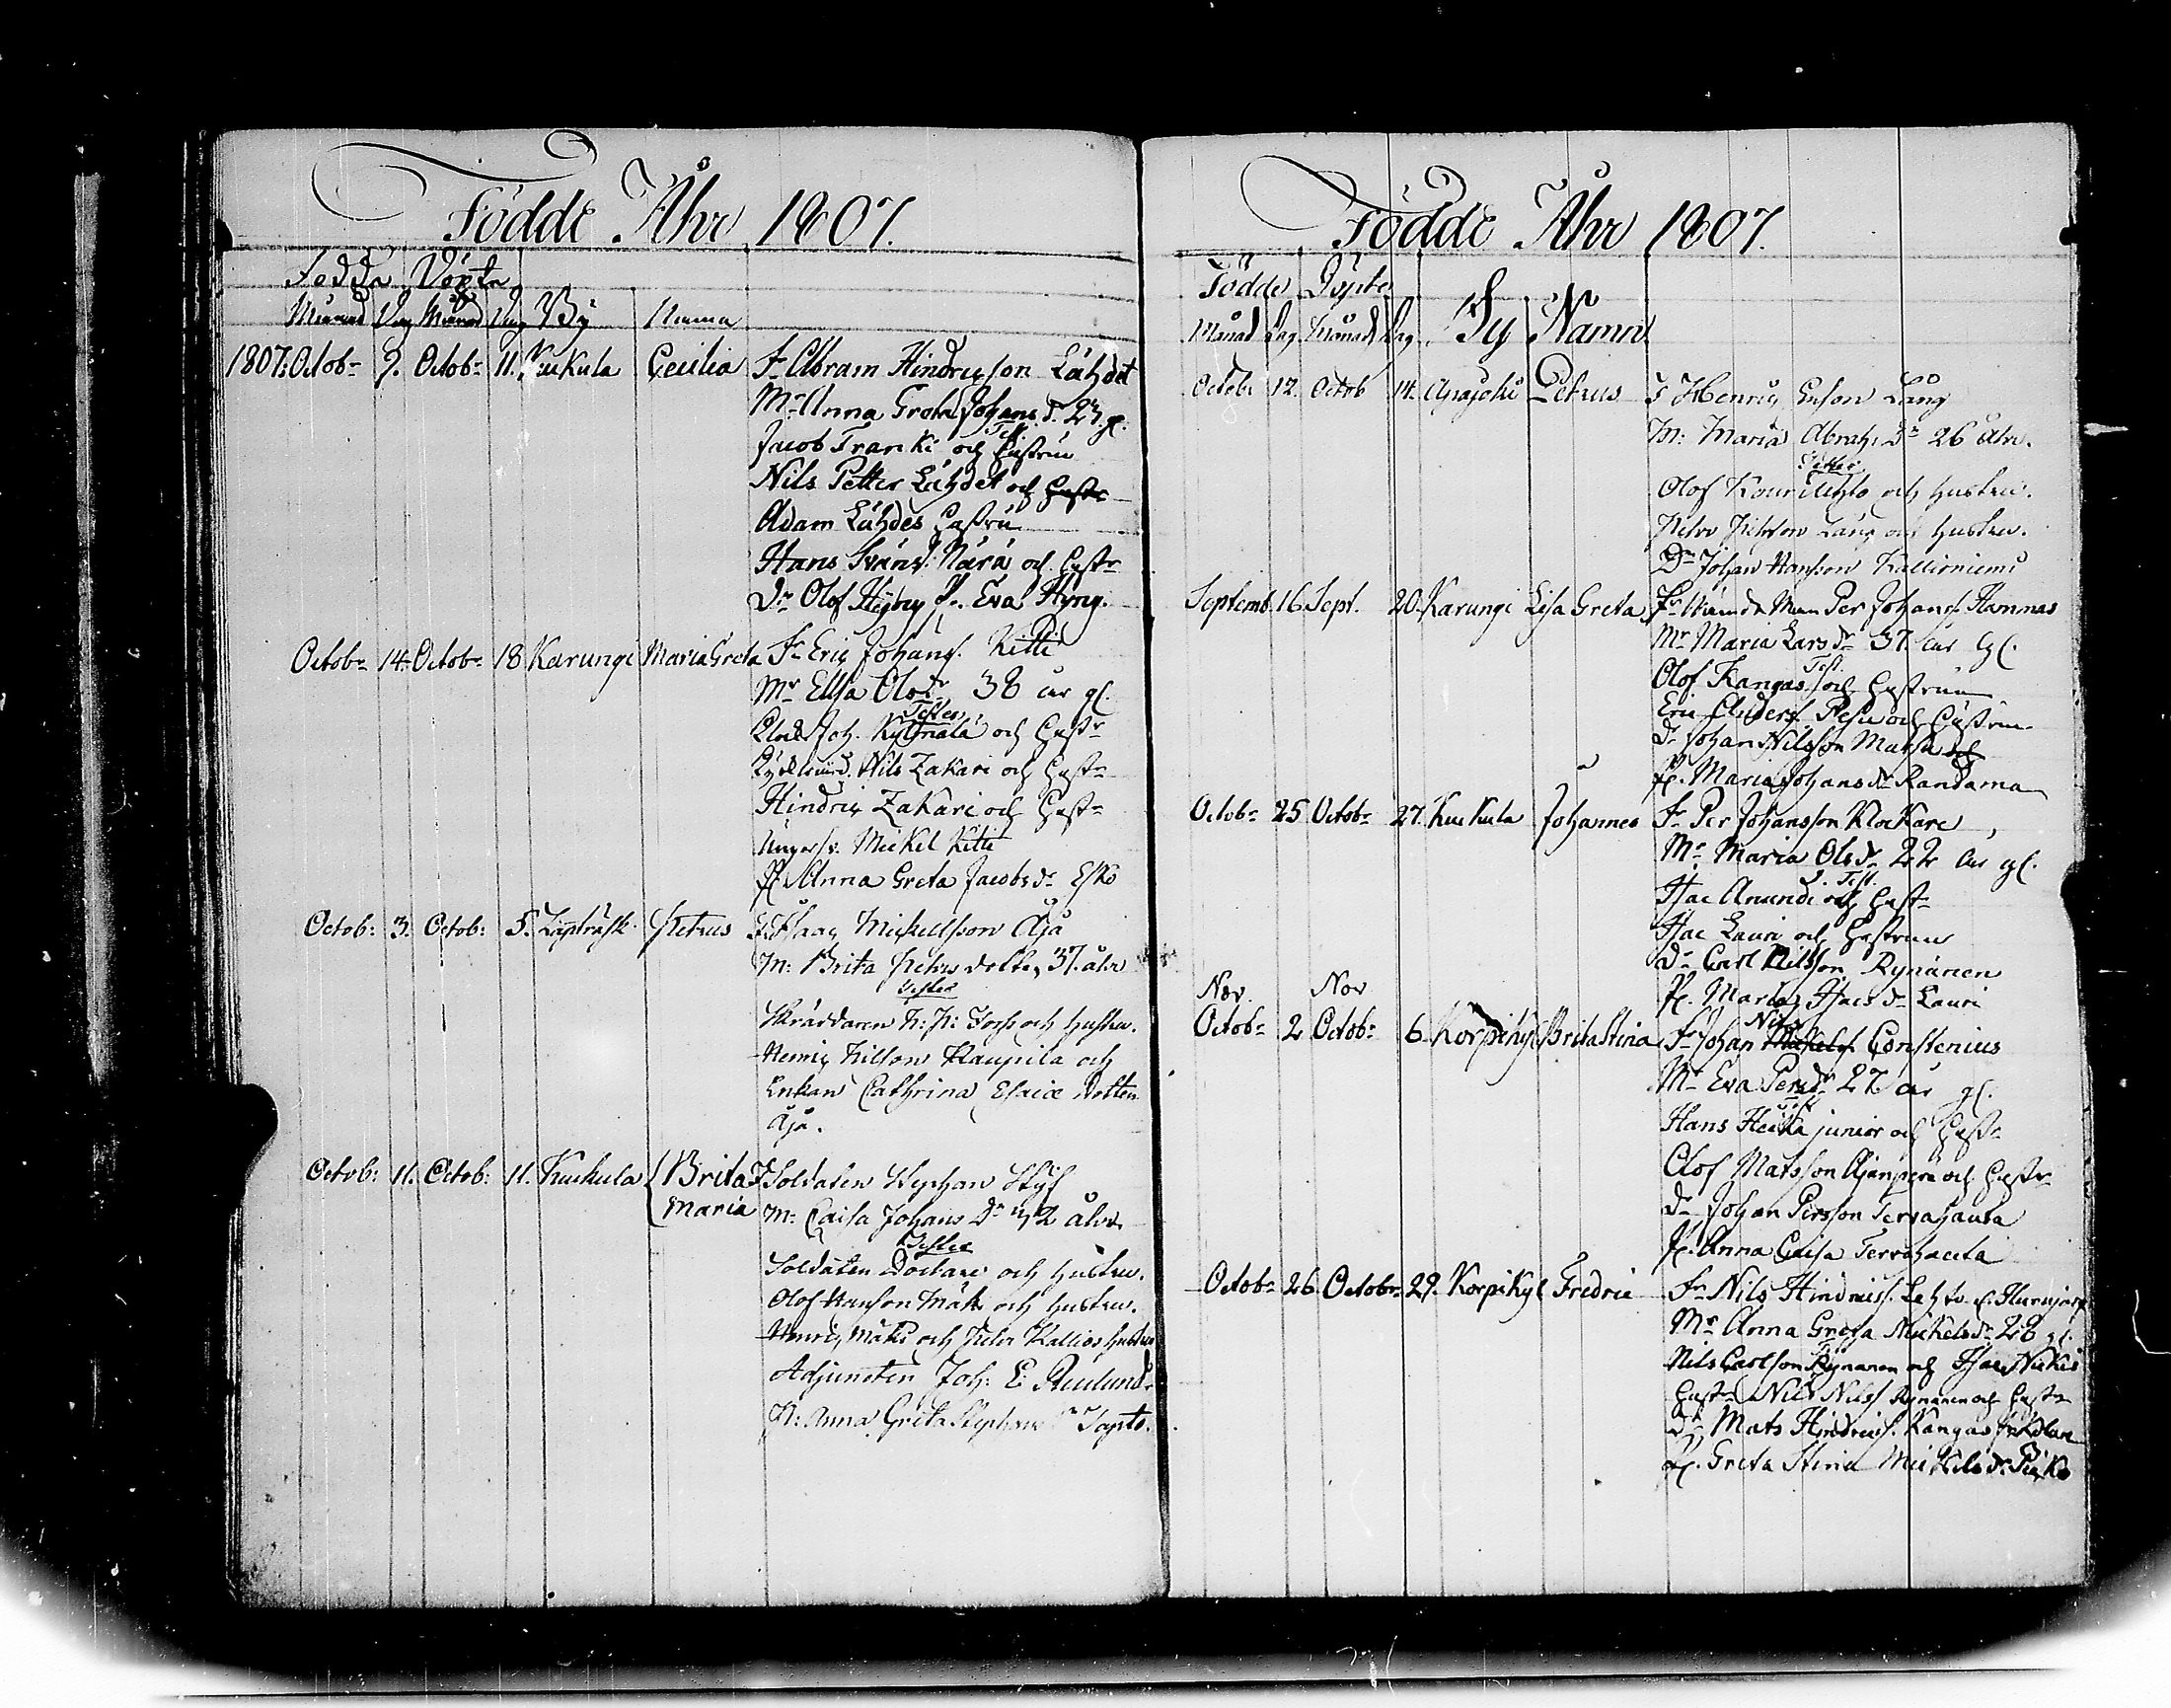 Födde Åhr 1807.
Födda Döpta
Månad Dag Månad Dag By Namn
1807: Octob- 9. Octob- 11. Kukula Cecilia F- Abram Hindricson Lähdet
Mr Anna Greta Johans dr 23. gl.
Test.
Jacob Franki och Hustru
Nils Petter Lähdet och Hustr
Adam Lähdes Hustru
Hans Nära och Hustr
Dr Olof P. Eva
Octobr 14. Octobr 18 Karungi Maria Greta Fr Eric Johans. Kitti
Mr Elsa Ols dr 38 år gl.
Testes
Joh. och Hustr
Nils Zakari och Hustr
Hindric Zakari och Hustr
Ungersv. Mickel Kitti
P. Anna Greta Jacobs dr Esko
Octob: 3. Octob: 5. Lappträsk Petrus F: Isaac Michellsson Äjä
M: Brita Petrus dotter 37. åhr
Testes
Skräddaren P: P: Forss och hustru.
Henric Nilson Kaupila och
Enkan Cathrina Esaiæ dotter
Äjä.
Octob: 11. Octob: 11. Kukula Brita Maria F: Soldaten Stephan Styf
M: Caisa Johans Dr 42 åhr
Testes
Soldaten och hustru.
Olof Hanson Mäki och hustru.
Henric Mäki och Petr Kallios hustru
Adjuncten Joh: E:
P: Anna Greta Stephans
Födde Åhr 1807.
Födde Döpte
Månad Dag Månad Dag By Namn
Octobr 12. Octob 14. Apajoki Petrus F Henric Erson Lång
M: Maria Abrah: Dr 26 åhr.
Testes
Olof och hustru.
Petr Lång och hustru.
Dr Johan Hanson Kallioniemi
Septemb. 16. Sept. 20. Karungi Lisa Greta Fr Per Johans. Hannas
Mr Maria Lars dr 37. år gl.
Test.
Olof Kangas och Hustru
Eric Anders. och Hustru
Dr Johan Nilsson och
P. Maria Johans dr Randama
Octobr 25 Octobr 27. Kukula Johannes Fr Per Johansson Klockare
Mr Maria Ols dr 22 år gl.
Test.
Isac Anundi och Hustr
Isac Lauri och Hustru
dr Carl Nilsson Rynänen
P. Maria Isacs dr Lauri
Nov. Nov
Octobr 2 Octobr 6 Korpikyl Brita Stina Fr Johan Nils Constenius
Mr Eva Pers dr 27 år gl.
Test
Hans Heikka junior och Hustr
Olof Matsson och Hustr
dr Johan Persson Tervahauta
P. Anna Caisa Tervahauta
Octobr 26. Octobr 29. Korpikyl Fredric Fr Nils Hindricss. Lehto
Mr Anna Greta Mickels dr 28 gl.
Nils Carlson Rynanen och Isac
Hustr Nils Nilss. Rynanen och Hustr
dr Mats Hindricss. Kangas
P. Greta Stina Mickels dr